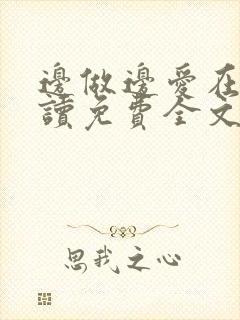 邊做邊愛在
讀免費全文
思我之心